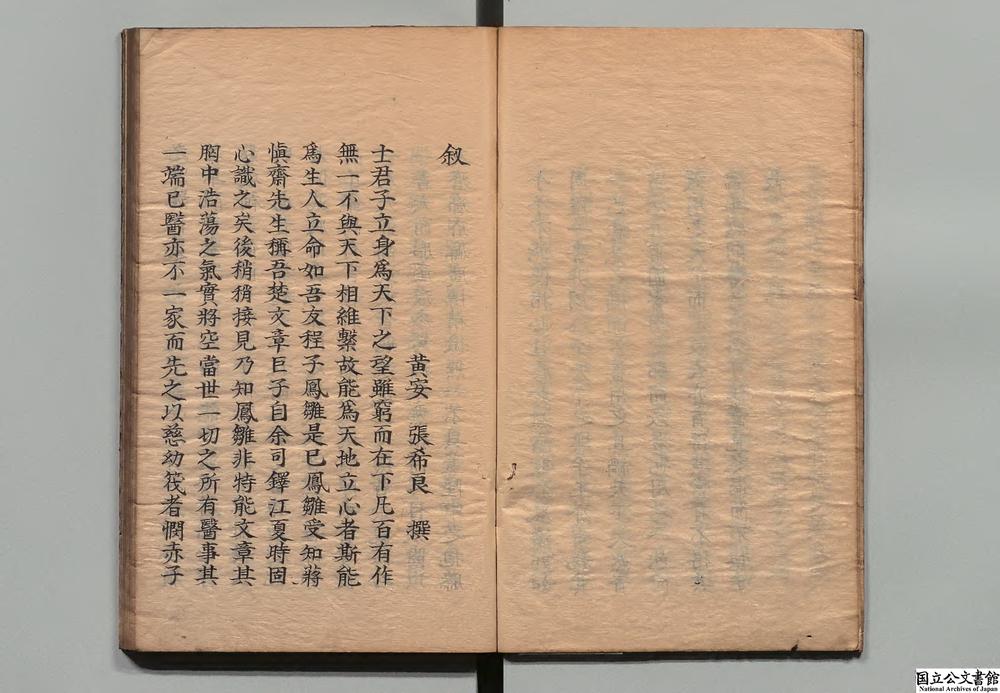 叙
黄安 張希良 撰
士君子立身爲天下之望雖窮而在下凡百有作
無一不與天下相維繫故能爲天地立心者斯能
爲生人立命如吾友程子鳳雛是巳鳳雛受知蔣
慎齋先生稱吾楚文章巨子自余司鐸江夏時固
心識之矣後稍稍接見乃知鳳雛非特能文章其
胸中浩蕩之氣實將空當世一切之所有醫事其
一端巳醫亦不一家而先之以慈幼筏者憫赤子
国立公文書館
National Archives of Japan